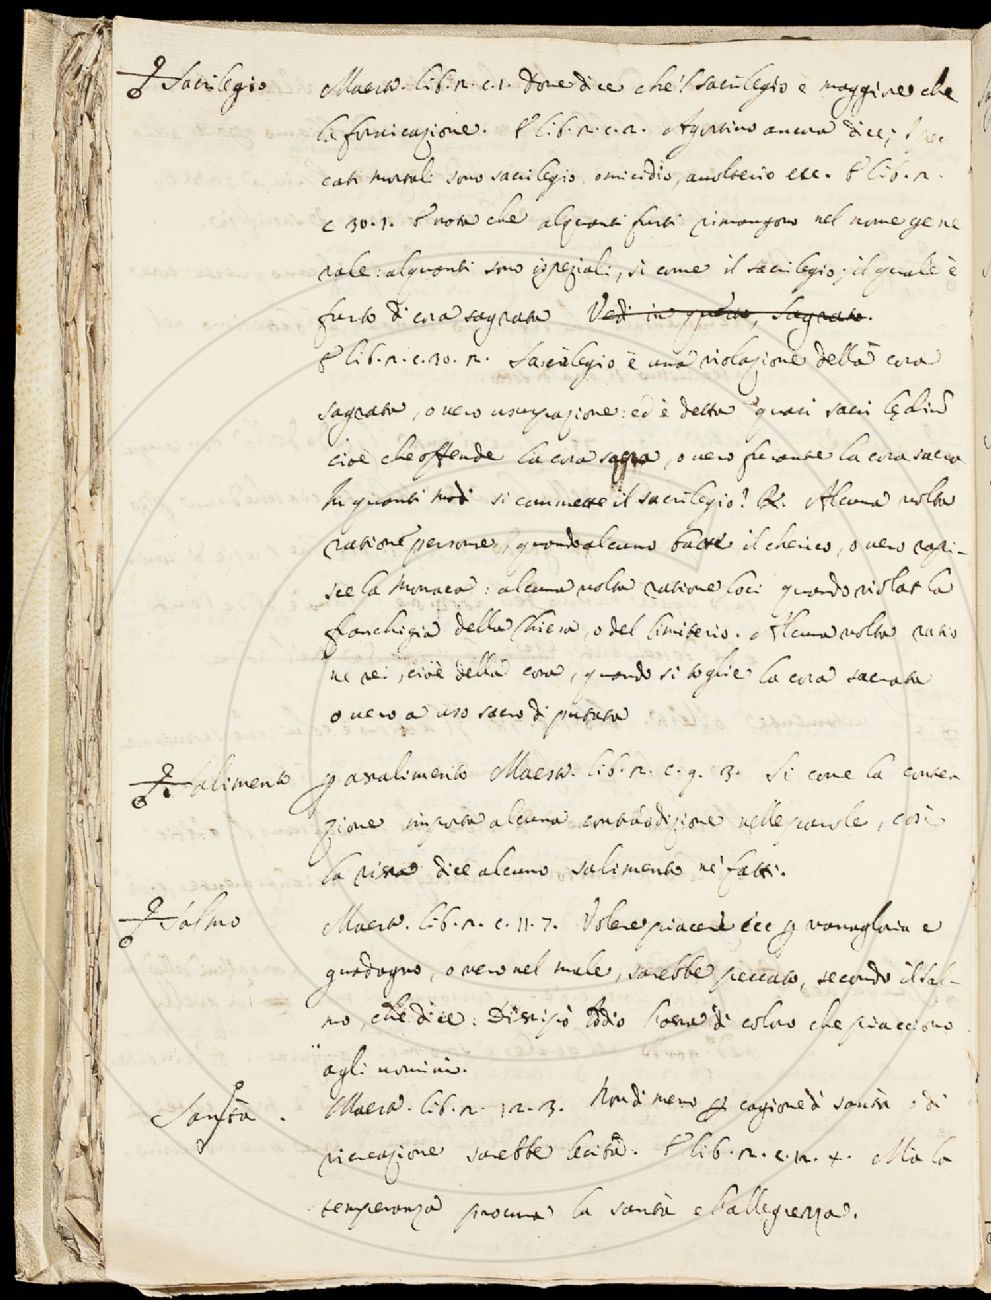 Sacrilegio Maestr. lib. 2. c. 1. Dove dice che 'l sacrilegio è maggiore che
la fornicazione. E lib. 2. c. 2. Agostino ancora dice; I pec-
cati mortali sono sacrilegio, omicidio, avolterio etc. E lib. 2.
c 30. 1. E nota che alquanti furti rimangono nel nome gene
rale: alquanti sono ispeziali, sì come il sacrilegio; il quale è
furto di cosa sagrata Vedi in questo, Sagrato.
E lib. 2. c. 30. 2. Sacrilegio è una violazione della cosa
sagrata, o vero usurpazione: ed è detta quasi sacri lędiũ
cioè che offende la cosa sagra, o vero ferente la cosa sacra
In quanti modi si commette il sacrilegio? R. Alcuna volta
ratione persone, quando alcuno batte il cherico, o vero rapi-
sce la Monaca: alcuna volta ratione loci quando violat la
franchigia della Chiesa, o del Cimiterio. Alcuna volta ratio
ne rei, cioè della cosa, quando si toglie la cosa sacrata
o vero a uso sacro diputata
Salimento p asalimento Maestr. lib. 2. c. 9. 3. Si come la conten-
zione importa alcuna contradizione nelle parole, così
la rissa dice alcuno salimento ne' fatti.
Salmo Maestr. lib. 2. c. 11. 7. Volere piacere ecc p vanagloria e
guadagno, o vero nel male, sarebbe peccato, secondo il Sal-
mo, che dice: Disripò Iddio l'ossa di coloro che piacciono
agli uomini.
Santà. Maestr. lib. 2. 12. 3. Nondimeno p cagione di santà o di
ricreazione sarebbe lecita. E lib. 2. c. 12. 4. Ma la
temperanza procura la santà e l'allegrezza.